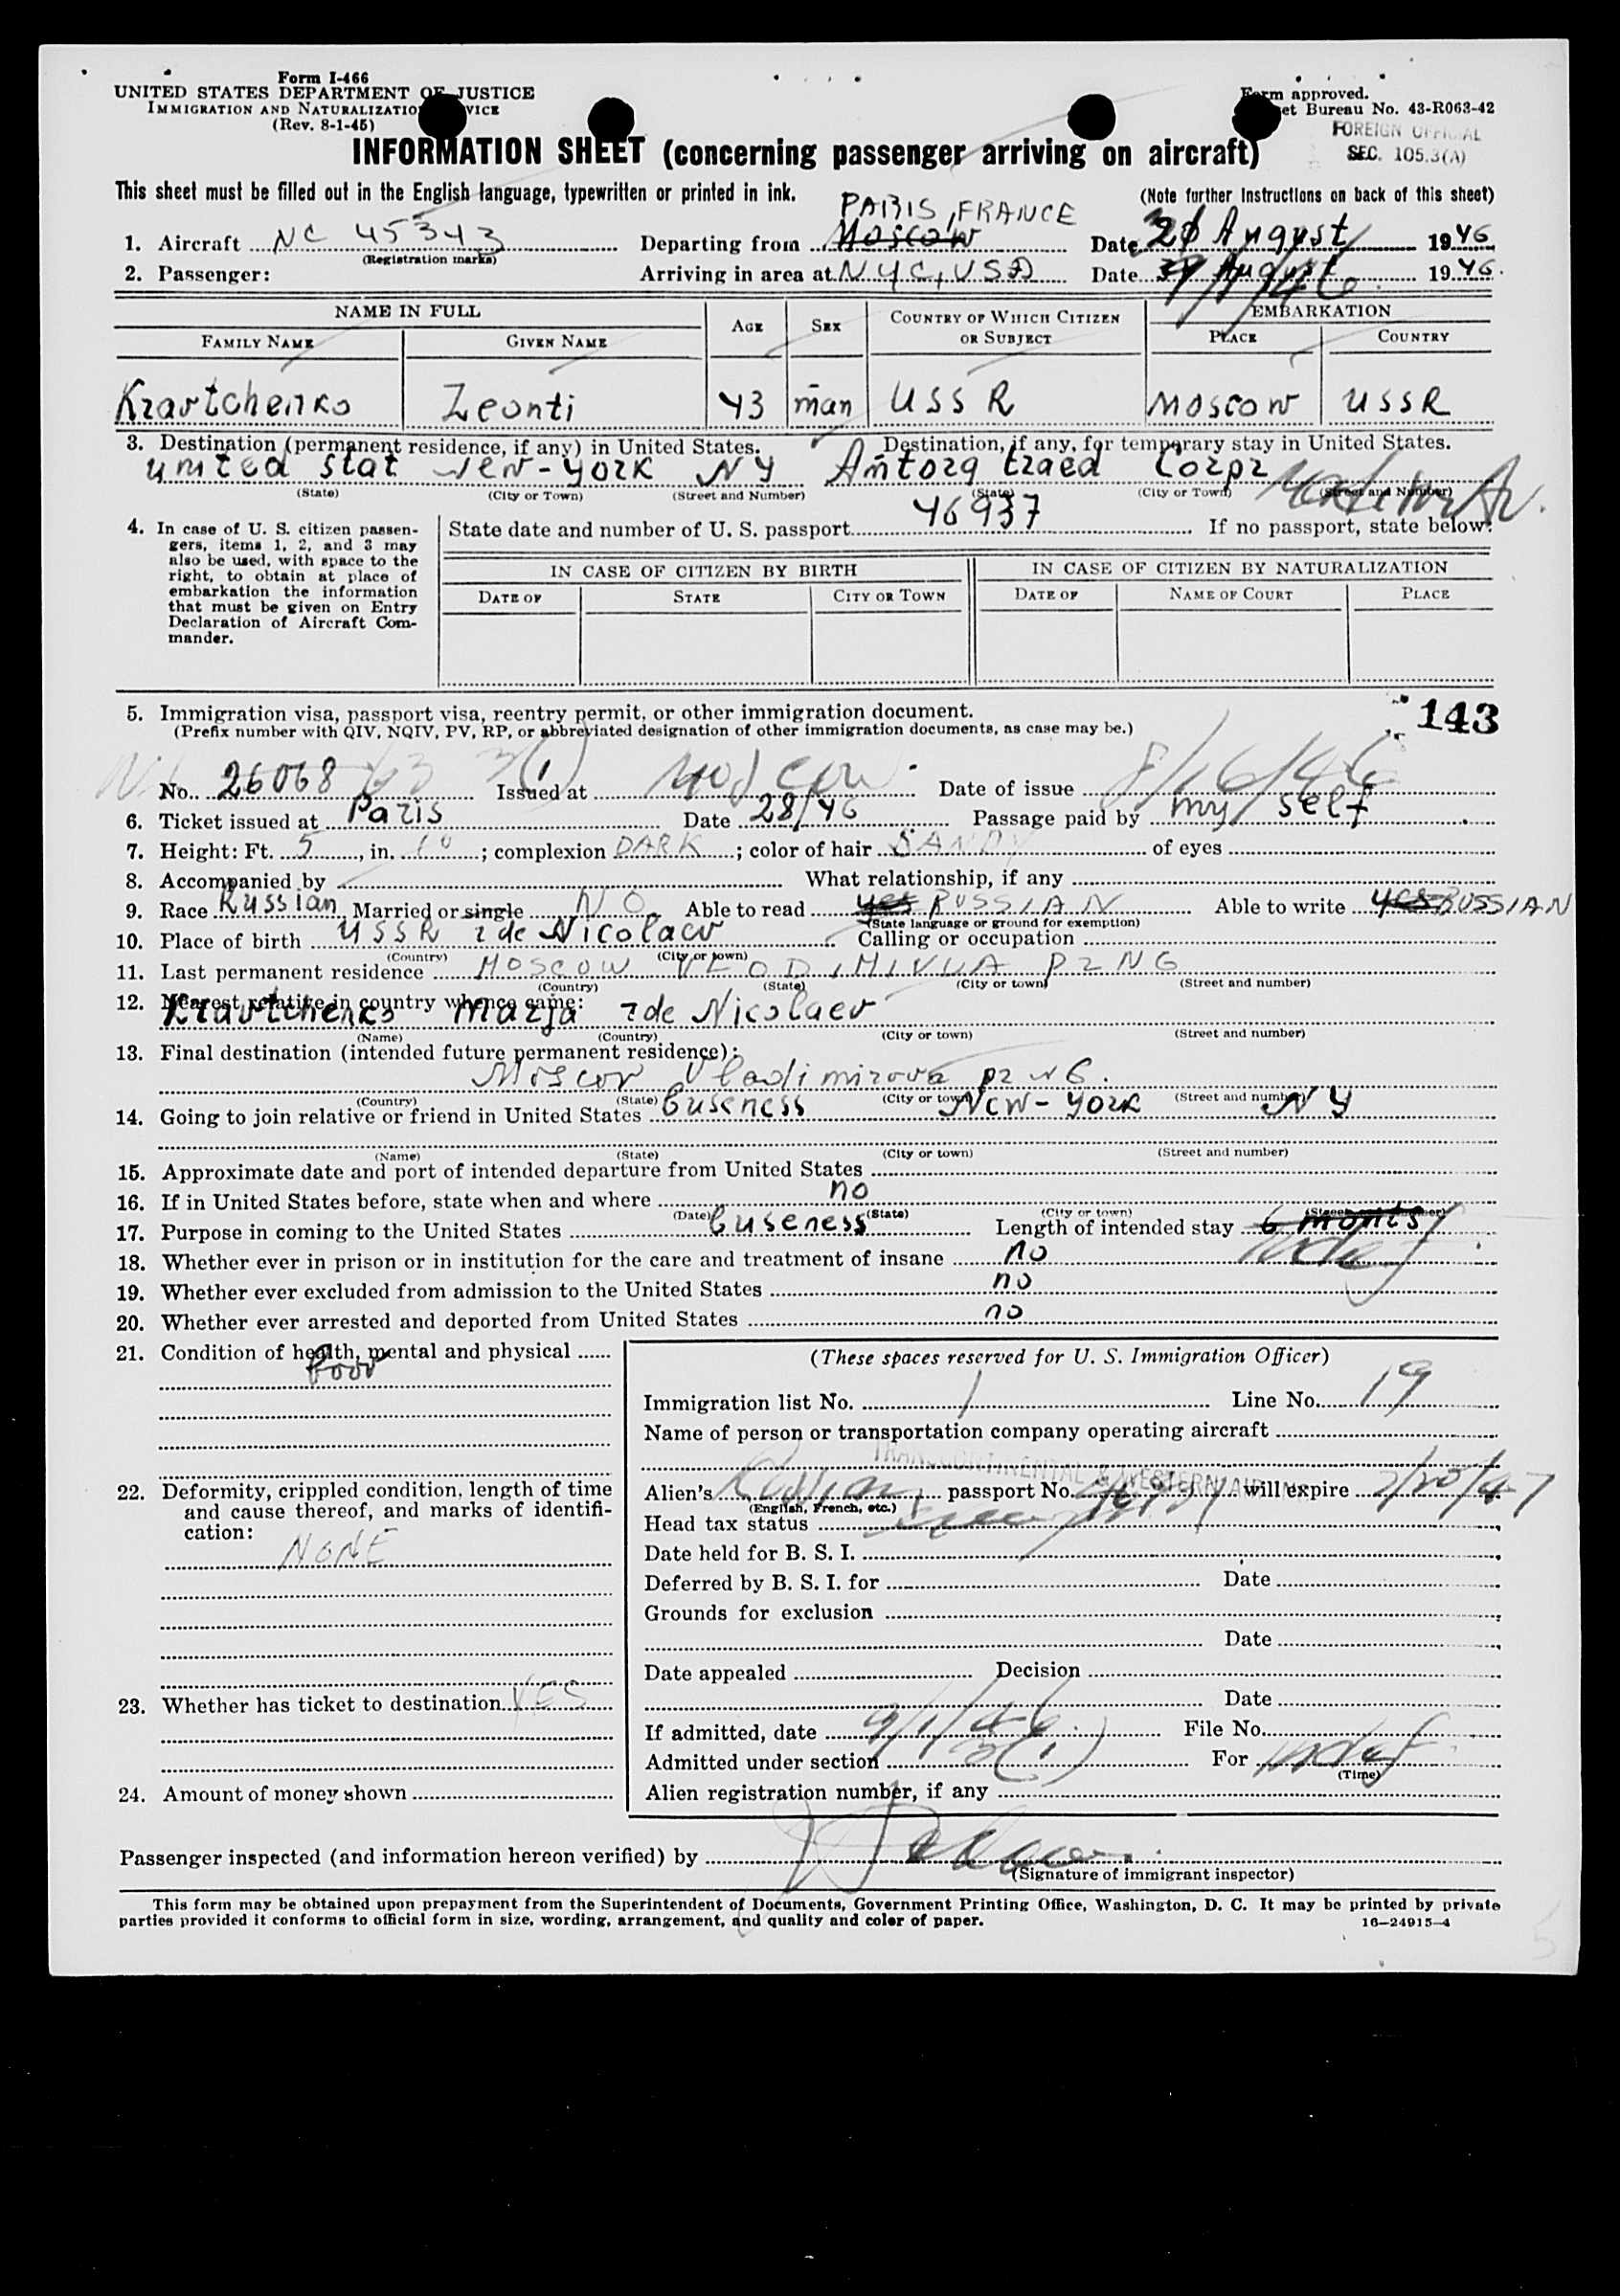 Form I-466
UNITED STATES DEPARTMENT OF JUSTICE
IMMIGRATION AND NATURALIZATIO VICE
(Rev. 8-1-45)
Form approved.
et Bureau No. 43-R063-42
FOREIGN OFFICIAL
SEC. 105.3(A)
INFORMATION SHEET (concerning passenger arriving on aircraft)
This sheet must be filled out in the English language, typewritten or printed in ink. (Note further instructions on back of this sheet)
PARIS, FRANCE
1. Aircraft NC 45343 Departing from Moscow Date August 1946
(Registration marks)
2. Passenger: Arriving in area at NYC, USA Date August 1946.
9/1/46
NAME IN FULL AGE SEX COUNTRY OF WHICH CITIZEN OR SUBJECT EMBARKATION
FAMILY NAME GIVEN NAME PLACE COUNTRY
Kravtchenko Leonti 43 man USSR Moscow USSR
3. Destination (permanent residence, if any) in United States. Destination, if any, for temporary stay in United States.
united stat New-York NY Amtorg traed Corpr Madison Av.
(State) (City or Town) (Street and Number) (State) (City or Town) (Street and Number)
4. In case of U. S. citizen passengers, items 1, 2, and 3 may also be used, with space to the right, to obtain at place of embarkation the information that must be given on Entry Declaration of Aircraft Commander.
State date and number of U. S. passport 46937 If no passport, state below:
IN CASE OF CITIZEN BY BIRTH IN CASE OF CITIZEN BY NATURALIZATION
DATE OF STATE CITY OR TOWN DATE OF NAME OF COURT PLACE
5. Immigration visa, passport visa, reentry permit, or other immigration document. 143
(Prefix number with QIV, NQIV, PV, RP, or abbreviated designation of other immigration documents, as case may be.)
No. 26068 3(1) Issued at Moscow Date of issue 8/16/46
6. Ticket issued at Paris Date 28/46 Passage paid by my self
7. Height: Ft. 5, in. 10; complexion DARK; color of hair SANDY of eyes
8. Accompanied by What relationship, if any
9. Race Russian Married or single NO Able to read yes RUSSIAN Able to write yes RUSSIAN
(State language or ground for exemption)
10. Place of birth USSR Nicolaev Calling or occupation
(Country) (City or town)
11. Last permanent residence MOSCOW
(Country) (State) (City or town) (Street and number)
12. Nearest relative in country whence came:
Kravtchenko Marja Nicolaev
(Name) (Country) (City or town) (Street and number)
13. Final destination (intended future permanent residence):
Moscow Vladimirova pr N 6.
(Country) (State) (City or town) (Street and number)
14. Going to join relative or friend in United States buseness New-York NY
(Name) (State) (City or town) (Street and number)
15. Approximate date and port of intended departure from United States
16. If in United States before, state when and where no
(Date) (State) (City or town) (Street and number)
17. Purpose in coming to the United States buseness Length of intended stay 6 monts indef
18. Whether ever in prison or in institution for the care and treatment of insane no
19. Whether ever excluded from admission to the United States no
20. Whether ever arrested and deported from United States no
21. Condition of health, mental and physical
22. Deformity, crippled condition, length of time and cause thereof, and marks of identification:
NONE
23. Whether has ticket to destination YES
24. Amount of money shown
(These spaces reserved for U. S. Immigration Officer)
Immigration list No. 1 Line No. 19
Name of person or transportation company operating aircraft
TRANSCONTINENTAL & WESTERN AIR
Alien's Russian passport No. will expire
(English, French, etc.)
Head tax status
Date held for B. S. I.
Deferred by B. S. I. for Date
Grounds for exclusion
Date
Date appealed Decision
Date
If admitted, date 9/1/46 File No.
Admitted under section 3(1) For indef
(Time)
Alien registration number, if any
Passenger inspected (and information hereon verified) by
(Signature of immigrant inspector)
This form may be obtained upon prepayment from the Superintendent of Documents, Government Printing Office, Washington, D. C. It may be printed by private
parties provided it conforms to official form in size, wording, arrangement, and quality and color of paper. 16—24915-4